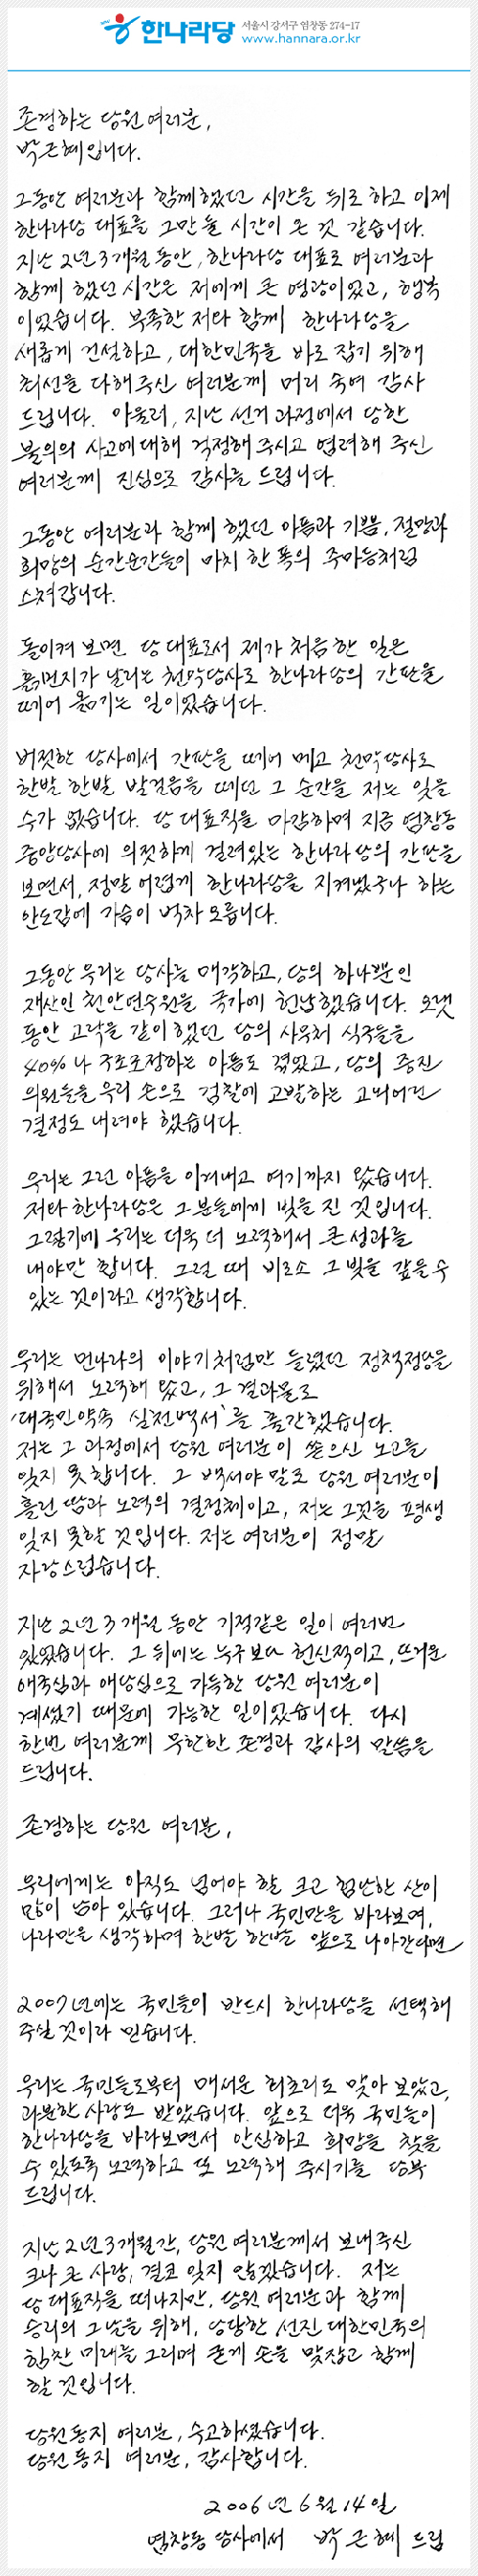 한나라당 서울시 강서구 염창동 274-17
www.hannara.or.kr
존경하는 당원 여러분,
박근혜입니다.
그동안 여러분과 함께 했던 시간을 뒤로 하고 이제
한나라당 대표를 그만 둘 시간이 온 것 같습니다.
지난 2년 3개월 동안, 한나라당 대표로 여러분과
함께 했던 시간은 저에게 큰 영광이었고, 행복
이었습니다. 부족한 저와 함께 한나라당을
새롭게 건설하고, 대한민국을 바로 잡기 위해
최선을 다해주신 여러분께 머리 숙여 감사
드립니다. 아울러, 지난 선거 과정에서 당한
불의의 사고에 대해 걱정해 주시고 염려해 주신
여러분께 진심으로 감사를 드립니다.
그동안 여러분과 함께 했던 아픔과 기쁨, 절망과
희망의 순간순간들이 마치 한 폭의 주마등처럼
스쳐갑니다.
돌이켜 보면 당 대표로서 제가 처음 한 일은
흙먼지가 날리는 천막당사로 한나라당의 간판을
떼어 옮기는 일이었습니다.
버젓한 당사에서 간판을 떼어 메고 천막당사로
한발 한발 발걸음을 떼던 그 순간을 저는 잊을
수가 없습니다. 당 대표직을 마감하며 지금 염창동
중앙당사에 의젓하게 걸려있는 한나라당의 간판을
보면서, 정말 어렵게 한나라당을 지켜냈구나 하는
안도감에 가슴이 벅차 오릅니다.
그동안 우리는 당사를 매각하고, 당의 하나뿐인
재산인 천안연수원을 국가에 헌납했습니다. 오랫
동안 고락을 같이 했던 당의 사무처 식구들을
40%나 구조조정하는 아픔도 겪었고, 당의 중진
의원들을 우리 손으로 검찰에 고발하는 고뇌어린
결정도 내려야 했습니다.
우리는 그런 아픔을 이겨내고 여기까지 왔습니다.
저와 한나라당은 그 분들에게 빚을 진 것입니다.
그렇기에 우리는 더욱 더 노력해서 큰 성과를
내야만 합니다. 그럴 때 비로소 그 빚을 갚을 수
있는 것이라고 생각합니다.
우리는 먼나라의 이야기처럼만 들렸던 정책정당을
위해서 노력해 왔고, 그 결과물로
'대국민약속 실천백서'를 출간했습니다.
저는 그 과정에서 당원 여러분이 쏟으신 노고를
잊지 못합니다. 그 백서야 말로 당원 여러분이
흘린 땀과 노력의 결정체이고, 저는 그것을 평생
잊지 못할 것입니다. 저는 여러분이 정말
자랑스럽습니다.
지난 2년 3개월 동안 기적같은 일이 여러번
있었습니다. 그 뒤에는 누구보다 헌신적이고, 뜨거운
애국심과 애당심으로 가득한 당원 여러분이
계셨기 때문에 가능한 일이었습니다. 다시
한번 여러분께 무한한 존경과 감사의 말씀을
드립니다.
존경하는 당원 여러분,
우리에게는 아직도 넘어야 할 크고 험난한 산이
많이 남아 있습니다. 그러나 국민만을 바라보며,
나라만을 생각하며 한발 한발 앞으로 나아간다면
2007년에는 국민들이 반드시 한나라당을 선택해
주실 것이라 믿습니다.
우리는 국민들로부터 매서운 회초리도 맞아 보았고,
과분한 사랑도 받았습니다. 앞으로 더욱 국민들이
한나라당을 바라보면서 안심하고 희망을 찾을
수 있도록 노력하고 또 노력해 주시기를 당부
드립니다.
지난 2년 3개월간, 당원 여러분께서 보내주신
크나 큰 사랑, 결코 잊지 않겠습니다. 저는
당 대표직을 떠나지만, 당원 여러분과 함께
승리의 그날을 위해, 당당한 선진 대한민국의
힘찬 미래를 그리며 굳게 손을 맞잡고 함께
할 것입니다.
당원동지 여러분, 수고하셨습니다.
당원동지 여러분, 감사합니다.
2006년 6월 14일
염창동 당사에서 박근혜 드림